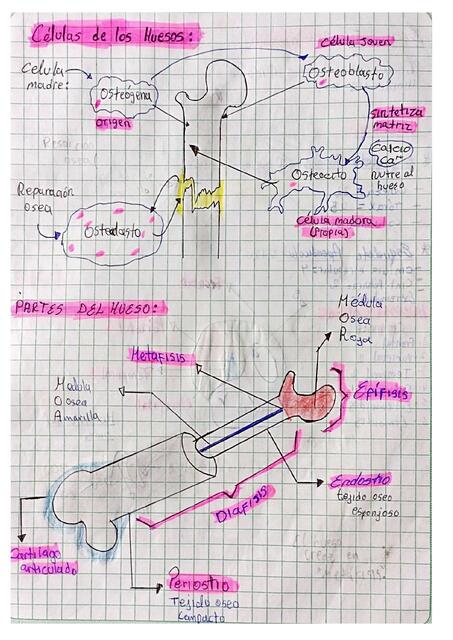 Células de los Huesos:
Célula Joven
Célula
madre:
Osteógena
origen
Osteoblasto
sintetiza
matriz
Calcio
Ca++
nutre al
hueso
Osteocito
Célula madora
(Propia)
Reparación
Osea
Osteoclasto
PARTES DEL HUESO:
Médula
Osea
Roja
Metafisis
Medula
Osea
Amarilla
Epífisis
Diafisis
Endostio
tejido oseo
esponjoso
Cartilago
articulado
Periostio
Tejido oseo
Compacto